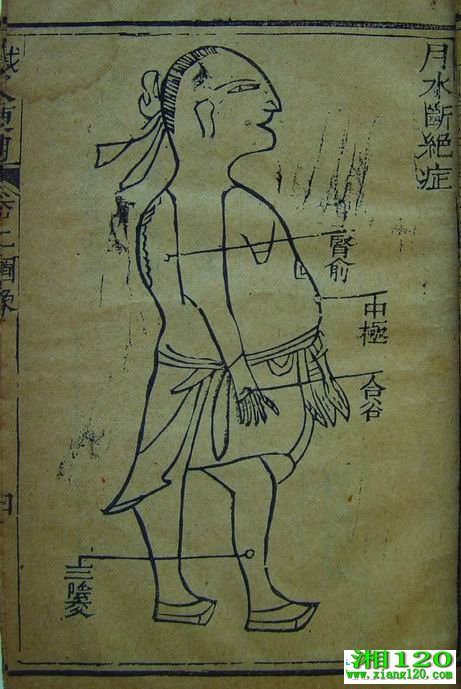 月水斷絶症
腎俞
中極
合谷
三陰交
圖像
四
湘120
www.xiang120.com